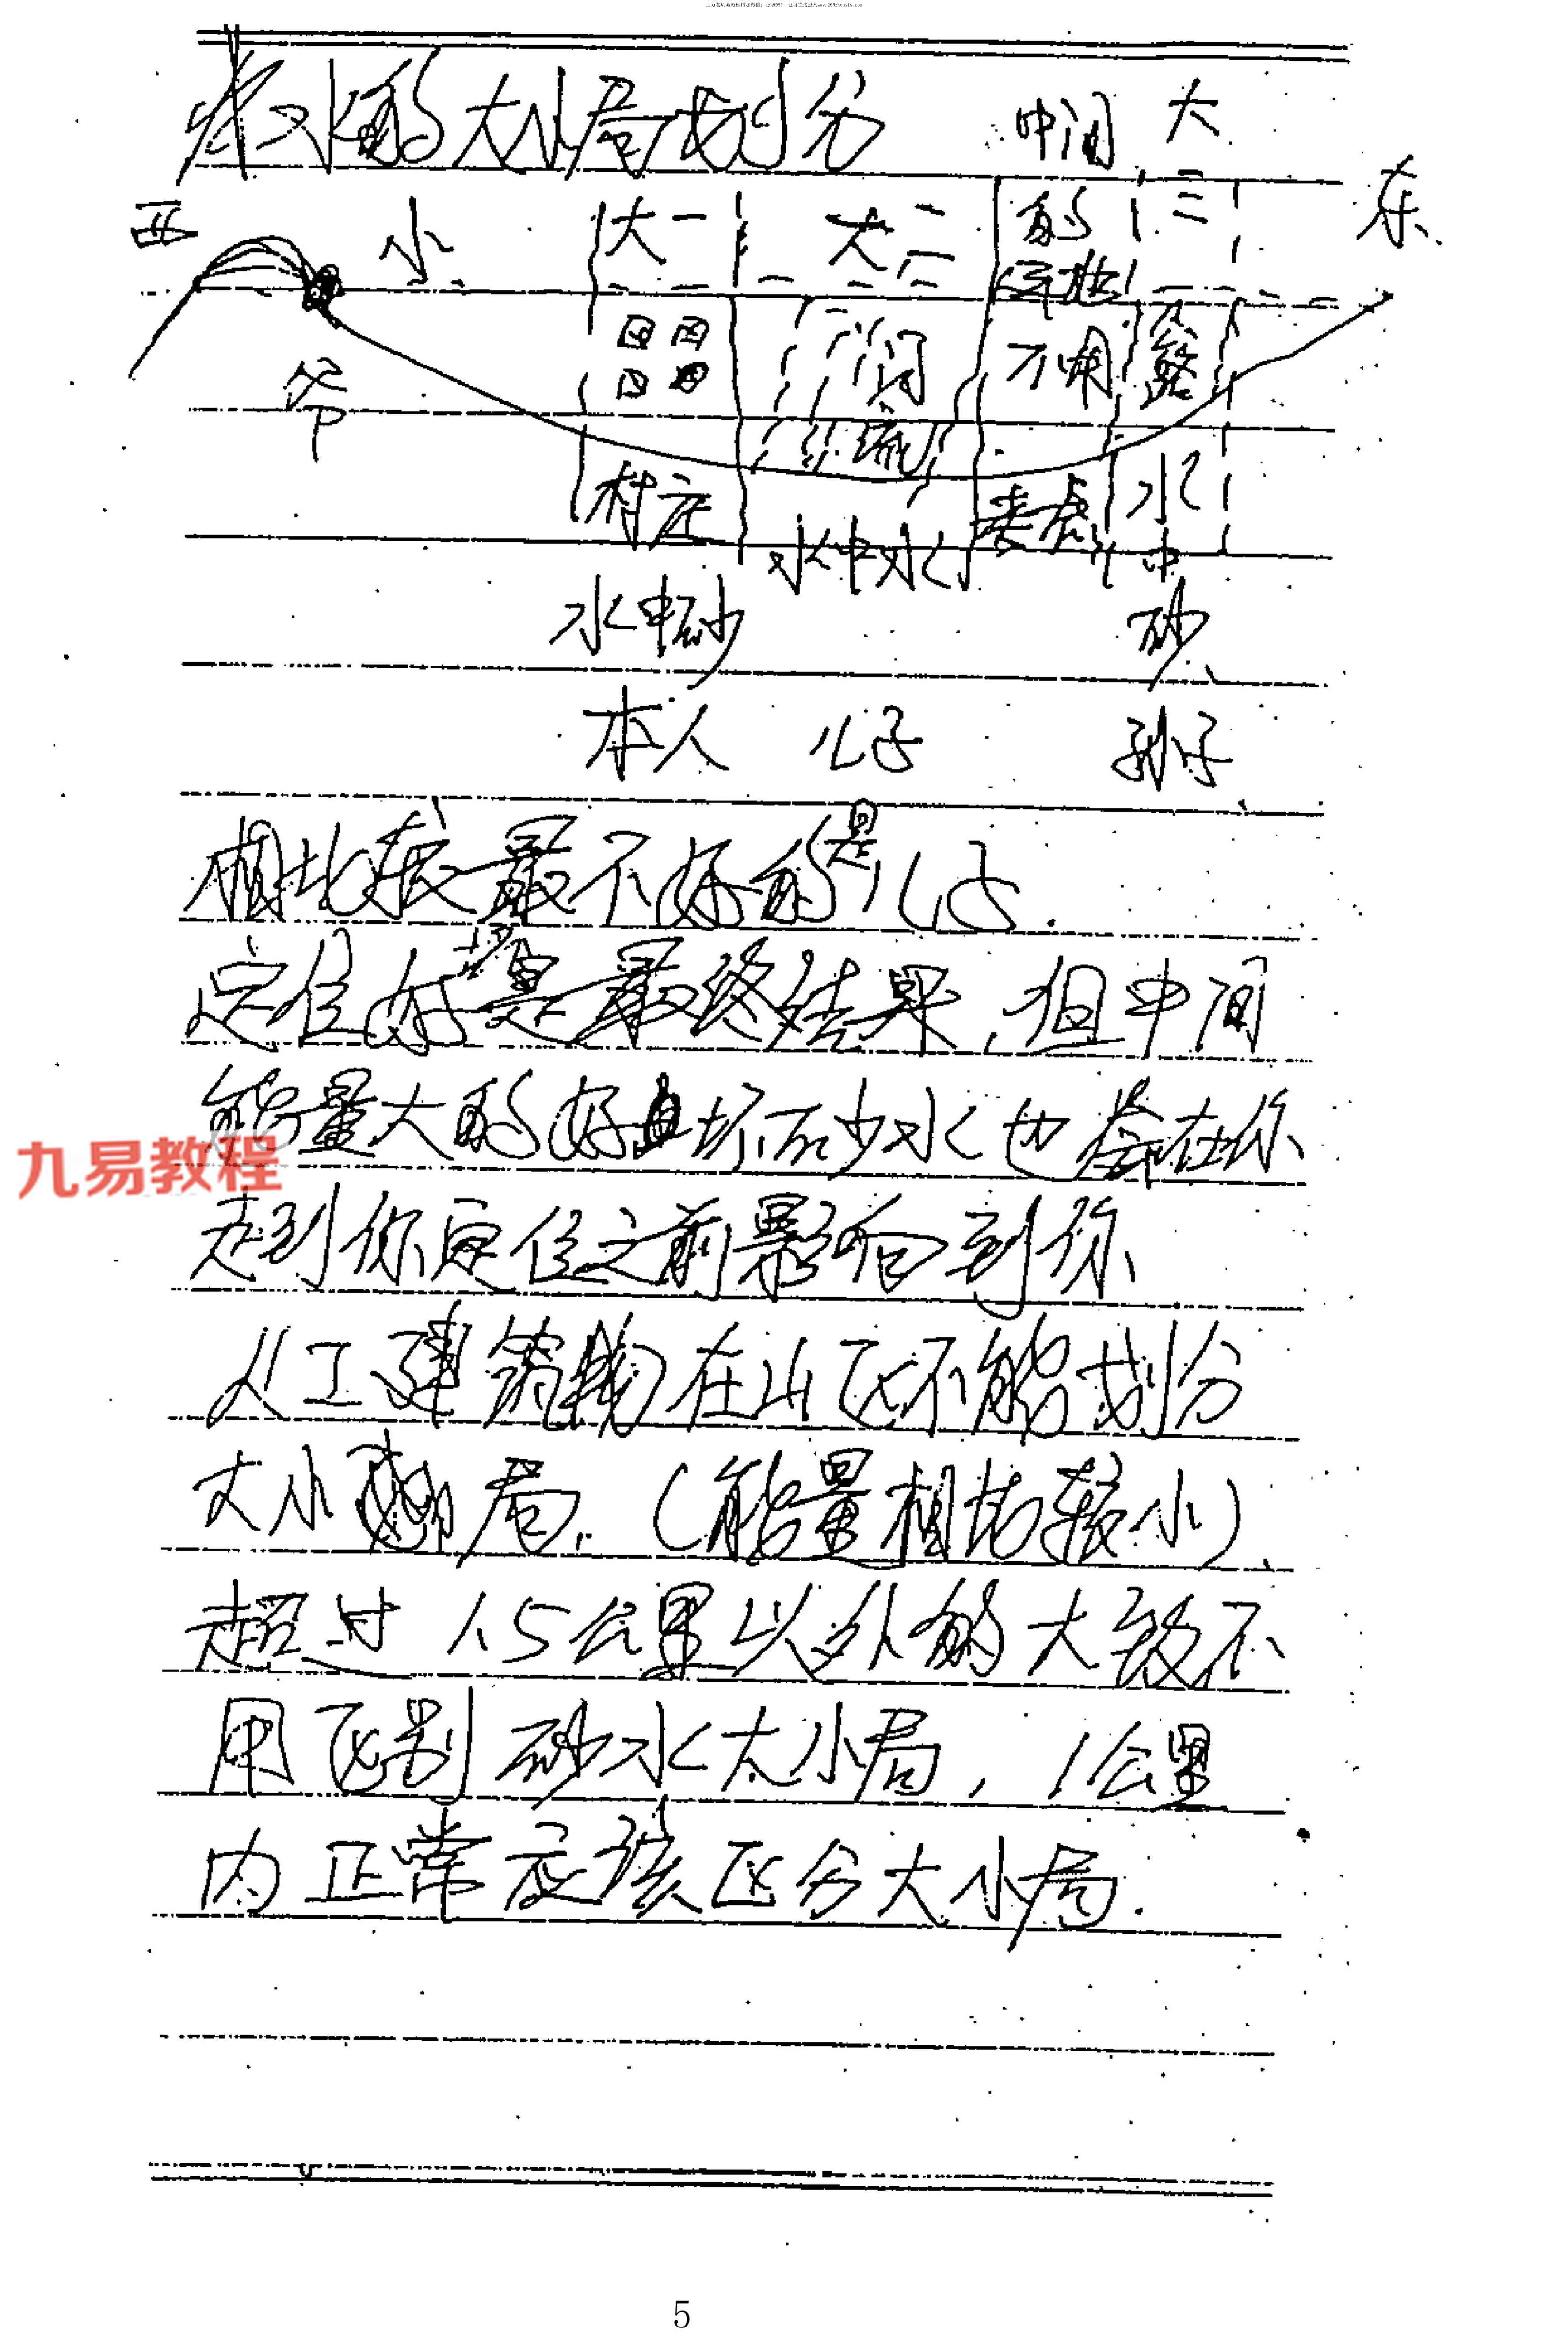 水的大小局划分 中间 大
西 小 大一 大二 的 三 东
平地
爷 河 不用 公路
流
村庄 水中水 考虑 水
中
水中砂 砂
本人 儿子 孙子
相比较最不好的是儿子.
定位好坏是最终结果,但中间
能量大的好坏砂水也会在你
走到你定位之前影响到你
人工建筑物在山区不能划分
大小局.(能量相比较小)
超过1.5公里以外的大致不
用区别砂水大小局,1公里
内正常应该区分大小局.
九易教程
5